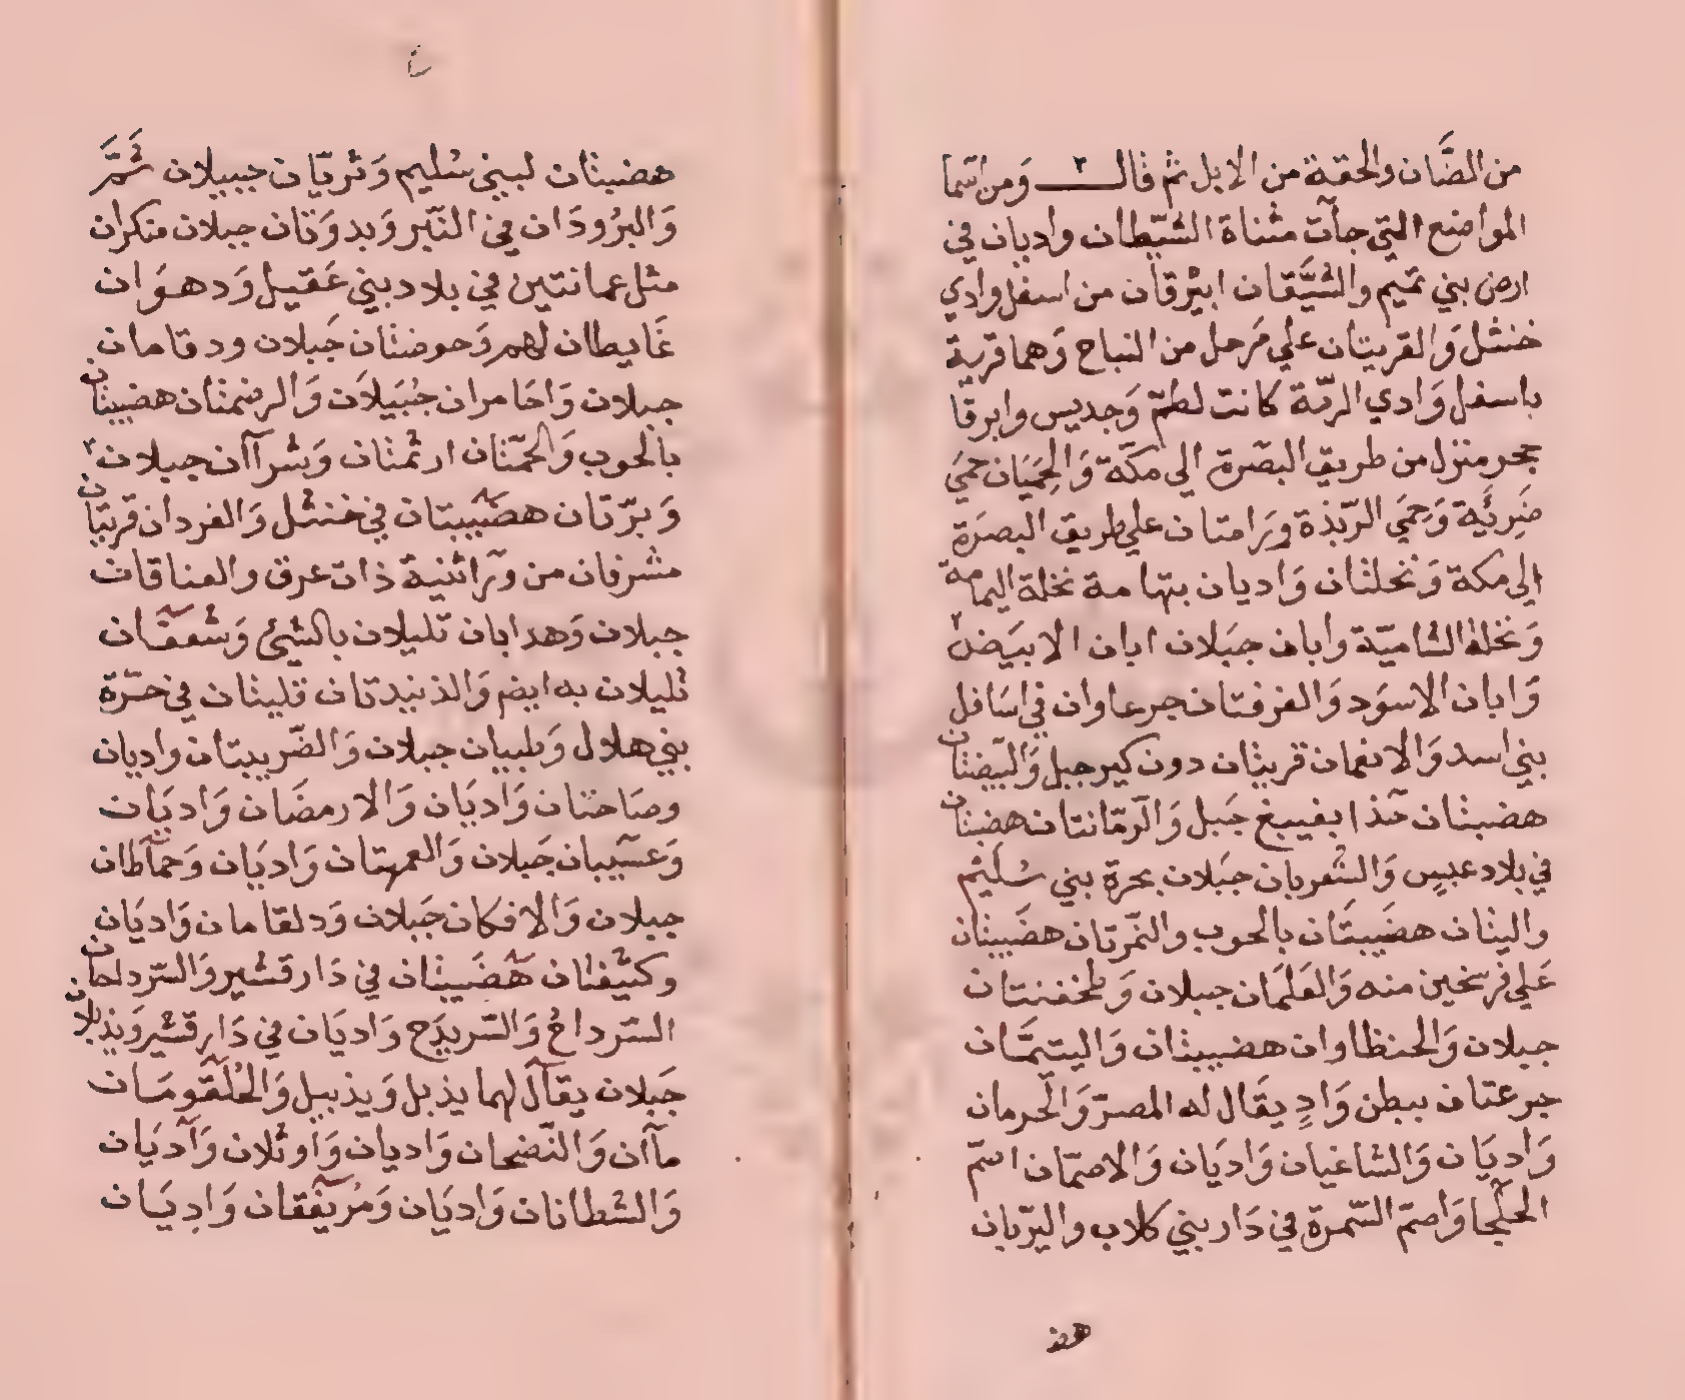 من الضَّان والحقة من الابل ثم قالـــــ وَمن اسّما
المواضع التي جآت مثناة الشيّطان واديان في
ارض بني تميم والشيَّقان ابيْرقان من اسفل وادي
خنثل وَالقريتان علي مَرحل من النباح وَهما قرية
باسفل وَادي الرمّة كانت لطسْمّ وَجديس وابرقا
حجر منزل من طريق البصَرة الي مكّة وَالحِميَان حِمَي
ضَرِيَّة وَحِمَي الرّبَذة ورَامتان علي طريق البصرَة
الي مكة وَنخلتان وَاديان بتهامة نخلة اليمامة
وَنخلة الشاميّة وابان جبَلان ابان الابيَض
وَابان الاسوَد وَالغرفتان جرعاوان في اسَافل
بني اسد وَالانعمان قريتان دون كير جبل وَالبَيضتان
هضبتان حَذا بغيبغ جَبل وَالرمّانتان هضبتان
في بلاد عبسٍ وَالشعربان جبَلان بحرة بني سُليْم
والبنان هضَيبتَان بالحوب والنمّرتان هضَيبتان
عَلي فرسَخين منه وَالعَلمَان جبلان وَطخفنتان
جبلان وَالحنظاوان هضيبيتان وَاليتيمَّان
جرعتان ببطن وَادٍ يقَال له المصرّ وَالحَرمان
وَاديَان وَالشاغيان وَاديَان وَالاصمّان اصمّ
الحلجا وَاصمّ السّمرة في دَار بني كلاب واليرّبان
هضـ
هضبتان لبني سُليم وَثريّان جبيلان شَمَّر
وَالبرُودَان في النّير وَبدوَتان جبلان منكران
مثل عمانتين في بلاد بني عَقيل وَدهوَان
غَايطان لهم وَحوضتان جَبلان ودقامان
جبلان وَاحَامران جُبَيلاَن وَالرضمتان هضيبتان
بالحوب وَالحمّتان ارثمتان وَشرآان جبلان
وَبرّتان هضَيبتان في خنثل وَالفردان قريتان
مشرفان من ورَا ثنية ذات عرق والعناقان
جبلان وَهدابان تليلان بالشيّ وَشعفان
تليلان به ايضٍ وَالذنيبدتان تليتان في حَرّة
بني هلال وَبلبيان جبلان وَالضّريبتان واديان
وصَاحتان وَاديَان وَالارمضَان وَاديَان
وَعسَيبان جَبلان وَالعمهتان وَاديَان وَحمَاطان
جبلان وَالافكان جَبلان وَدلقامان وَاديَان
وكتيفتان هَضَيبتان في دَار قشير وَالسّرداحان
السّرداحُ وَالسّريدَح وَاديَان في دَار قشير وَيذبلان
جَبلان يقآل لهما يذبل وَيذيبل وَالحُلقومَان
مآان وَالنّضحان وَاديان وَاوثلان وَآديَان
وَالشطانان وَاديَان وَمرَيفقان وَادِيَان